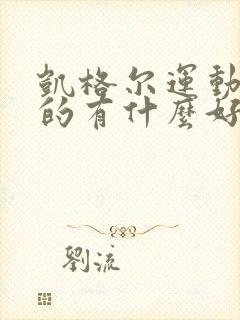 凱格尔運動
的有什麽好
劉流